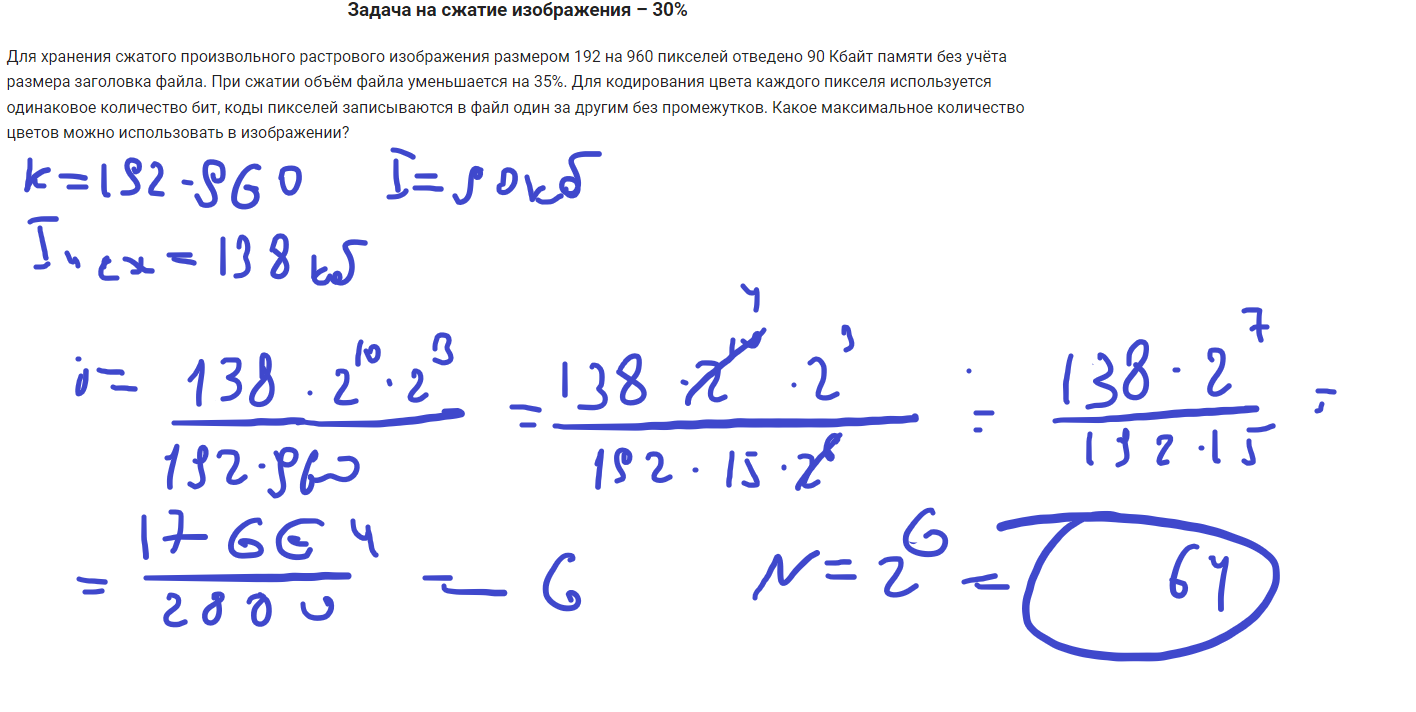 Задача на сжатие изображения – 30%
Для хранения сжатого произвольного растрового изображения размером 192 на 960 пикселей отведено 90 Кбайт памяти без учёта
размера заголовка файла. При сжатии объём файла уменьшается на 35%. Для кодирования цвета каждого пикселя используется
одинаковое количество бит, коды пикселей записываются в файл один за другим без промежутков. Какое максимальное количество
цветов можно использовать в изображении?
k = 192 · 960 I = 90 кб
I исх = 138 кб
i = 138 · 2^10 · 2^3 / 192 · 960 = 138 · 2^10 4 · 2^3 / 192 · 15 · 2^6 = 138 · 2^7 / 192 · 15 =
= 17664 / 2880 = 6 N = 2^6 = 64